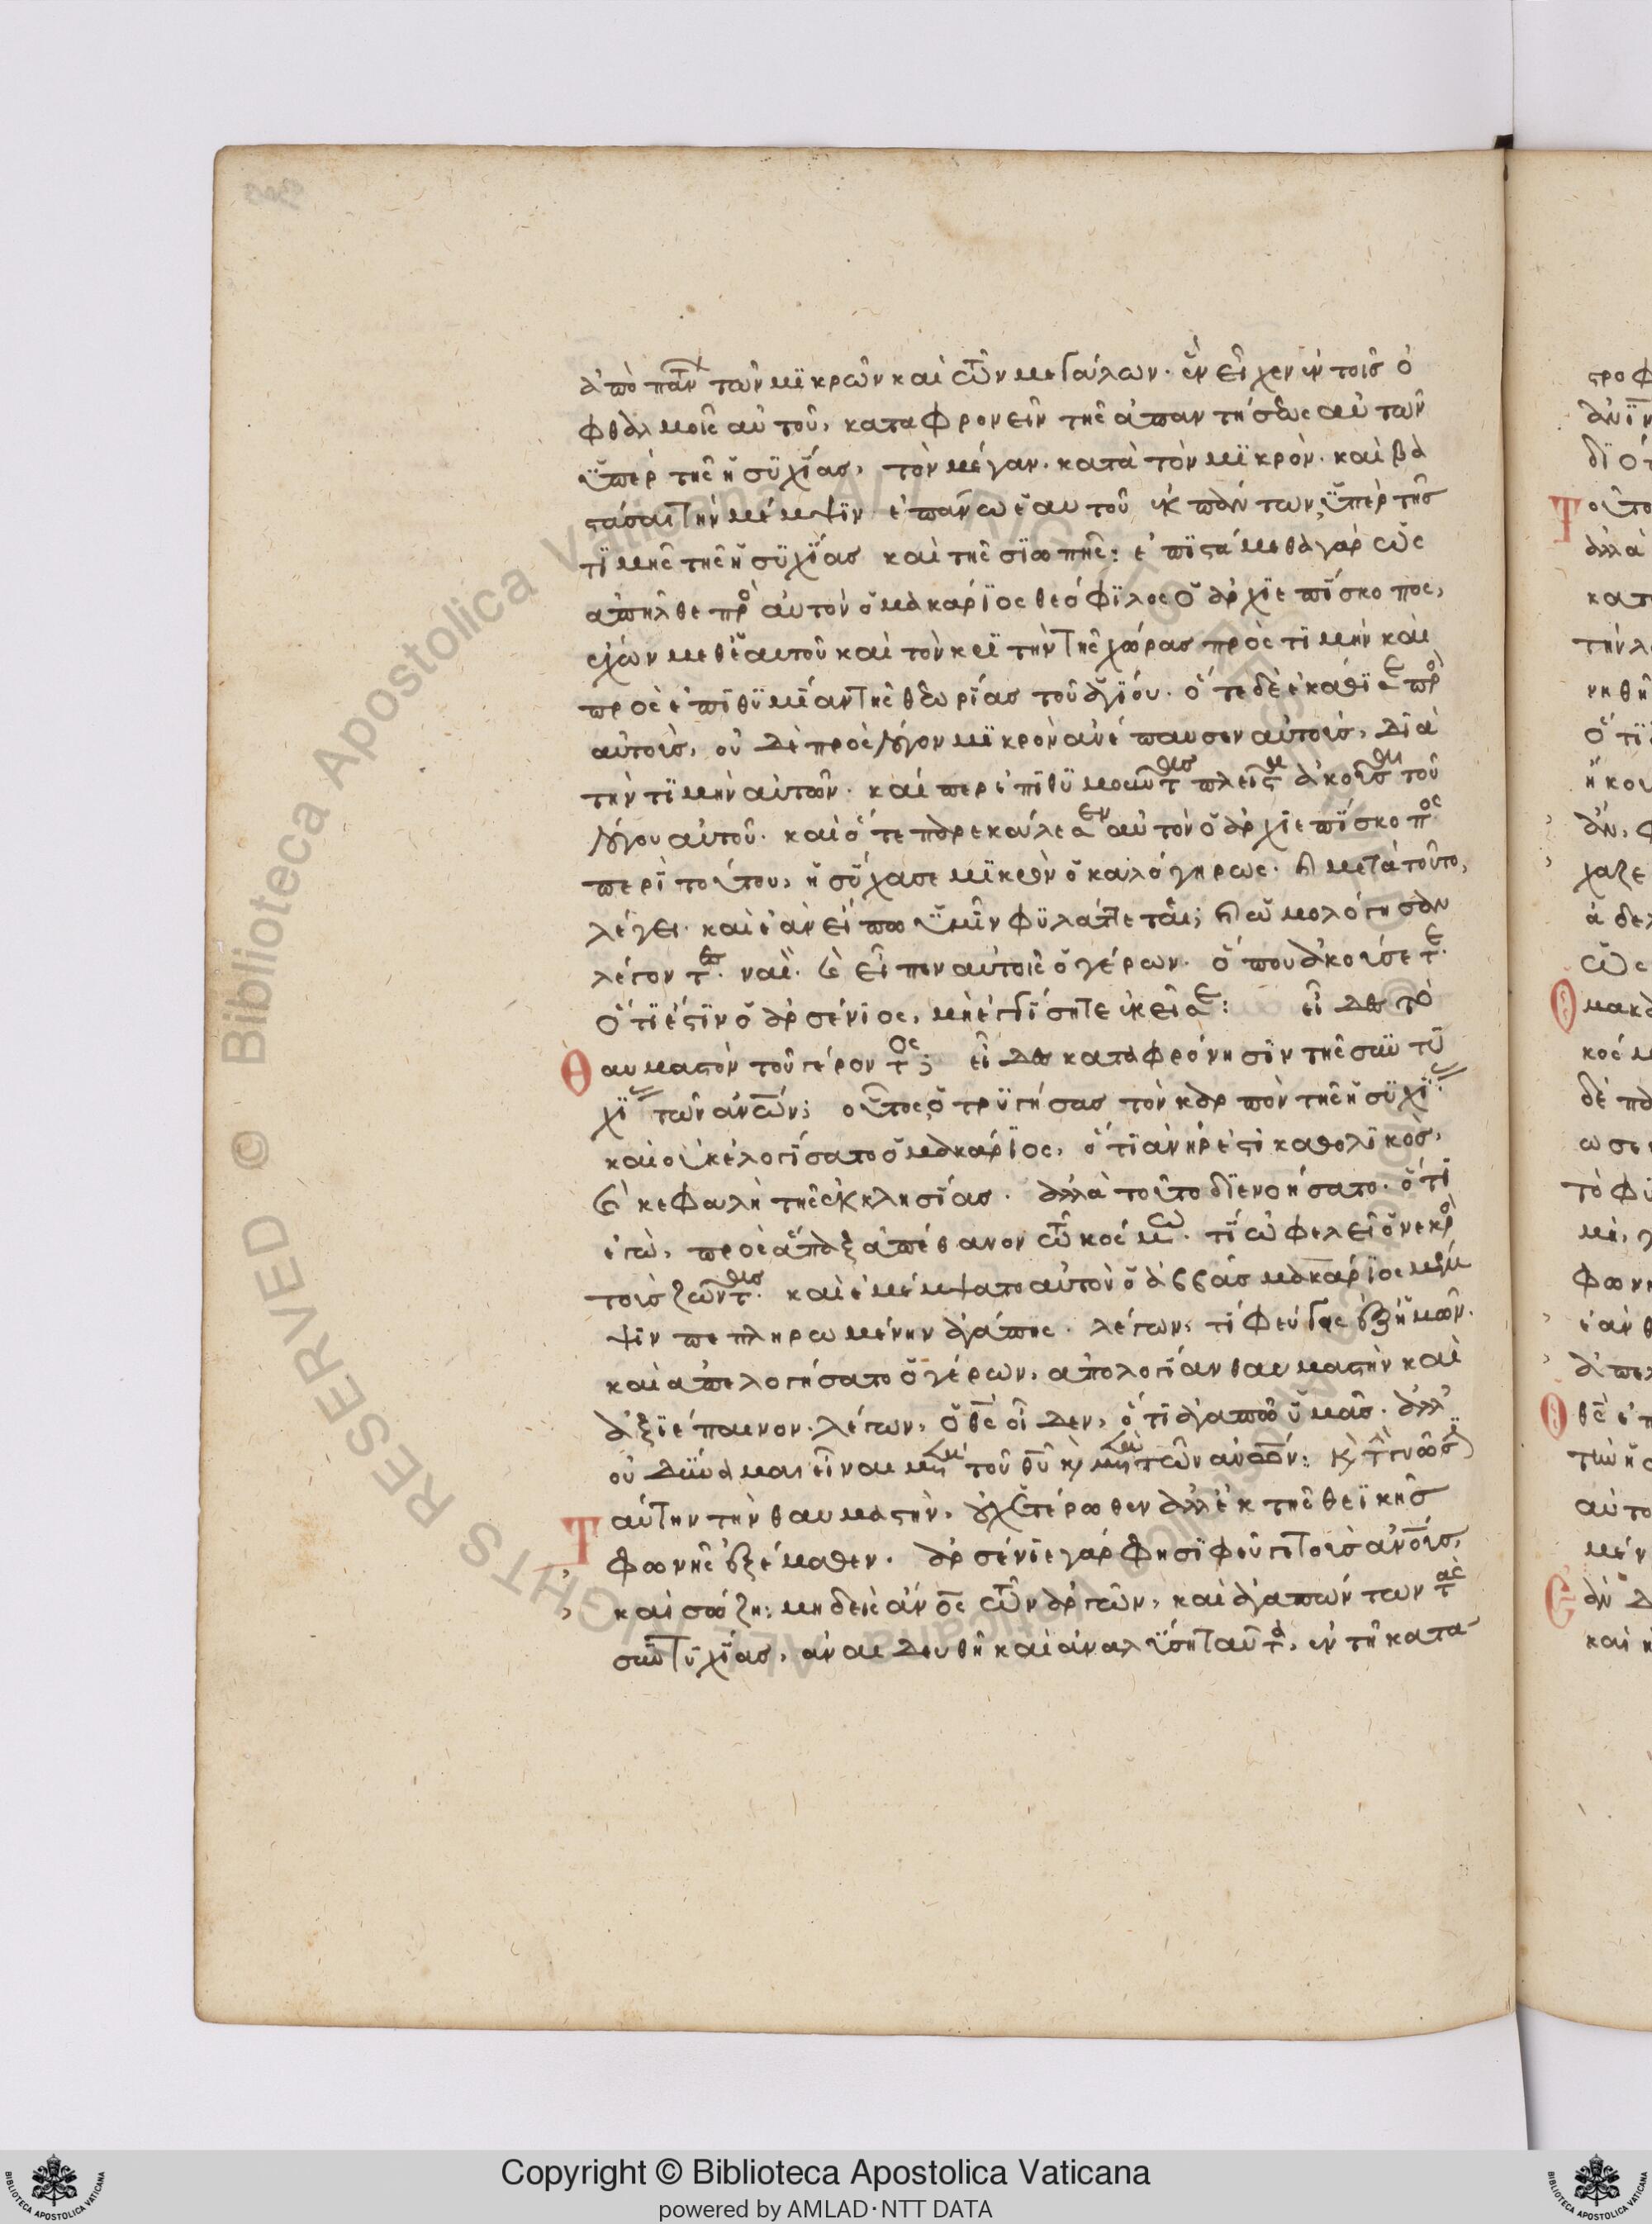 ἀπὸ πάντων τῶν μικρῶν καὶ τῶν μεγάλων. ἓν εἶχεν ἐν τοῖς ὀ
φθαλμοῖς αὐτοῦ, καταφρονεῖν τῆς ἀπαντήσεως αὐτῶν
ὑπὲρ τῆς ἡσυχίας, τὸν μέγαν. κατὰ τὸν μικρόν. καὶ βα
στάσαι τὴν μέμψιν ἐπάνω ἑαυτοῦ ἐκ πάντων, ὑπὲρ τῆς
τιμῆς τῆς ἡσυχίας καὶ τῆς σιωπῆς: ἐπιστάμεθα γὰρ ὡς
ἀπῆλθε πρὸς αὐτὸν ὁ μακάριος θεόφιλος ὁ ἀρχιεπίσκοπος,
ἔχων μεθ' ἑαυτοῦ καὶ τὸν κριτὴν τῆς χώρας πρὸς τιμὴν καὶ
πρὸς ἐπιθυμίαν τῆς θεωρίας τοῦ ἁγίου. ὅτε δὲ ἐκάθισε πρὸς
αὐτοῖς, οὐδὲ πρὸς λόγον μικρὸν ἀνέπαυσεν αὐτοῖς, διὰ
τὴν τιμὴν αὐτῶν. καίπερ ἐπιθυμοῦντας πλεῖστα ἀκοῦσαι τοῦ
λόγου αὐτοῦ. καὶ ὅτε παρεκάλεσεν αὐτὸν ὁ ἀρχιεπίσκοπος
περὶ τούτου, ἡσύχασε μικρὸν ὁ καλόγηρως. καὶ μετὰ τοῦτο,
λέγει. καὶ ἐὰν εἴπω ὑμῖν φυλάττετε; καὶ ὡμολόγησαν
λέγοντες. ναί. καὶ εἶπεν αὐτοῖς ὁ γέρων. ὅπου ἀκούσετε
ὅτι ἐστὶν ὁ ἀρσένιος, μὴ ἐγγίσητε ἐκεῖσε: εἶδες τὸ
θαυμαστὸν τοῦ γέροντος; εἶδες καταφρόνησιν τῆς συντυ
χίας τῶν ἀνων; οὗτος ὁ τρυγήσας τὸν καρπὸν τῆς ἡσυχίας.
καὶ οὐκ ἐλογίσατο ὁ μακάριος, ὅτι ἀνήρ ἐστι καθολικός,
καὶ κεφαλὴ τῆς ἐκκλησίας. ἀλλὰ τοῦτο διενοήσατο. ὅτι
ἐγώ, πρὸς ἅπαξ ἀπέθανον τῶ κόσμω. τί ὠφελεῖ ὁ νεκρὸς
τοῖς ζῶντας. καὶ ἐμέμψατο αὐτὸν ὁ ἀββᾶς μακάριος μέμ
ψιν πεπληρωμένην ἀγάπης. λέγων, τί φεύγεις ἐξ ἡμῶν.
καὶ ἀπελογήσατο ὁ γέρων, ἀπολογίαν θαυμαστὴν καὶ
ἀξιέπαινον. λέγων, ὁ θς οἶδεν, ὅτι ἀγαπῶ ὑμᾶς. ἀλλ'
οὐ δύναμαι εἶναι μετὰ τοῦ θυ καὶ μετὰ τῶν ἀνων: καὶ τὴν γνῶσιν
ταύτην τὴν θαυμαστήν, οὐχ ἑτέρωθεν ἀλλ' ἐκ τῆς θεϊκῆς
φωνῆς ἐξέμαθεν. ἀρσένιε γὰρ φησὶ φεῦγε τοὺς ἀνους,
καὶ σώζη: μηδεὶς ἀνος τῶν ἀργῶν, καὶ ἀγαπώντων τὰς
συντυχίας, ἀναιδευθῆ καὶ ἀναλύση ταῦτα, ἐν τῆ κατα-